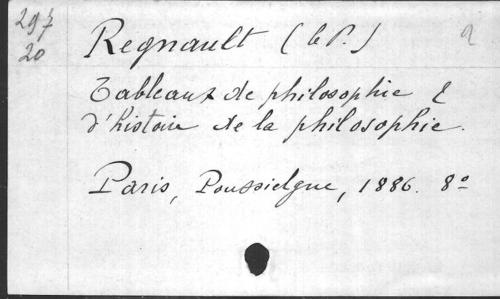 297
20
Regnault (le P.)
Tableaux de philosophie &
d'histoire de la philosophie.
Paris, Poussielgue, 1886. 8°